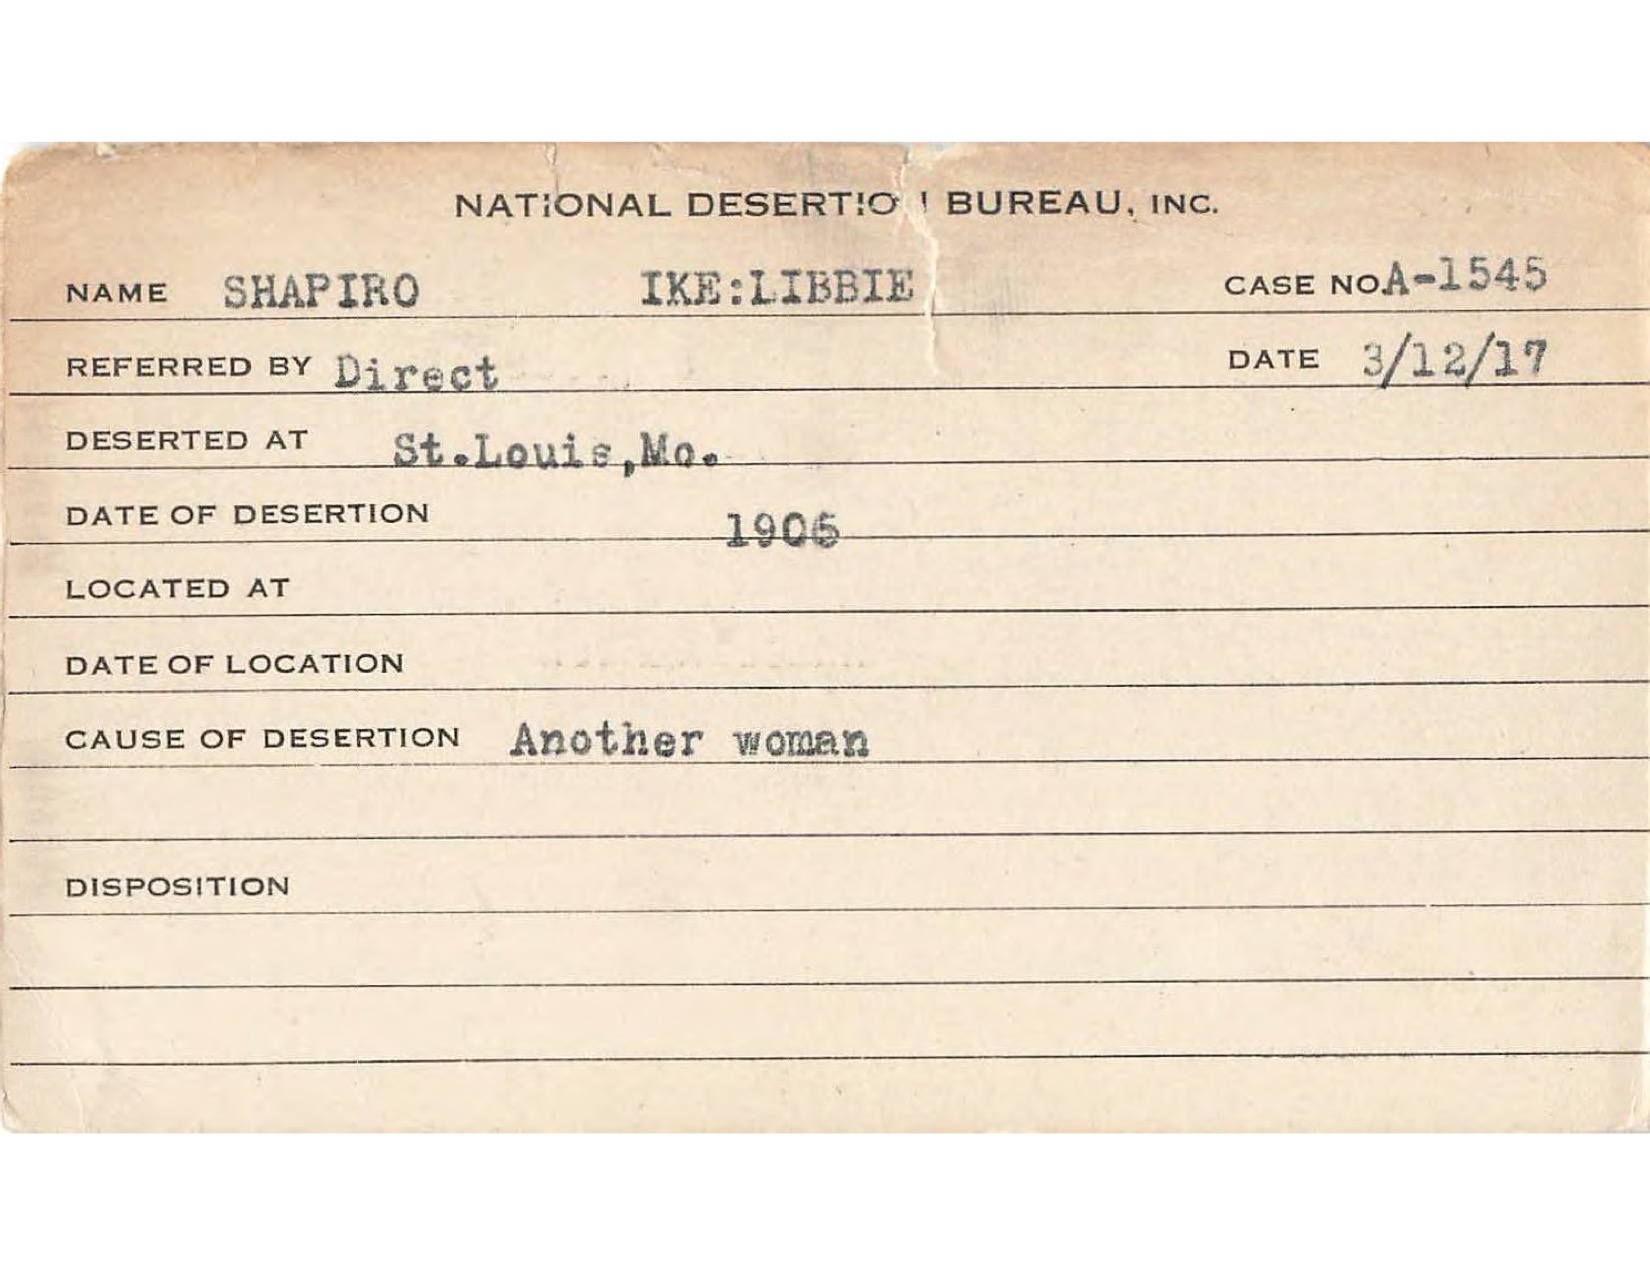 NATIONAL DESERTION BUREAU, INC.
NAME SHAPIRO IKE:LIBBIE CASE NO. A-1545
REFERRED BY Direct DATE 3/12/17
DESERTED AT St.Louis,Mo.
DATE OF DESERTION 1906
LOCATED AT
DATE OF LOCATION
CAUSE OF DESERTION Another woman
DISPOSITION